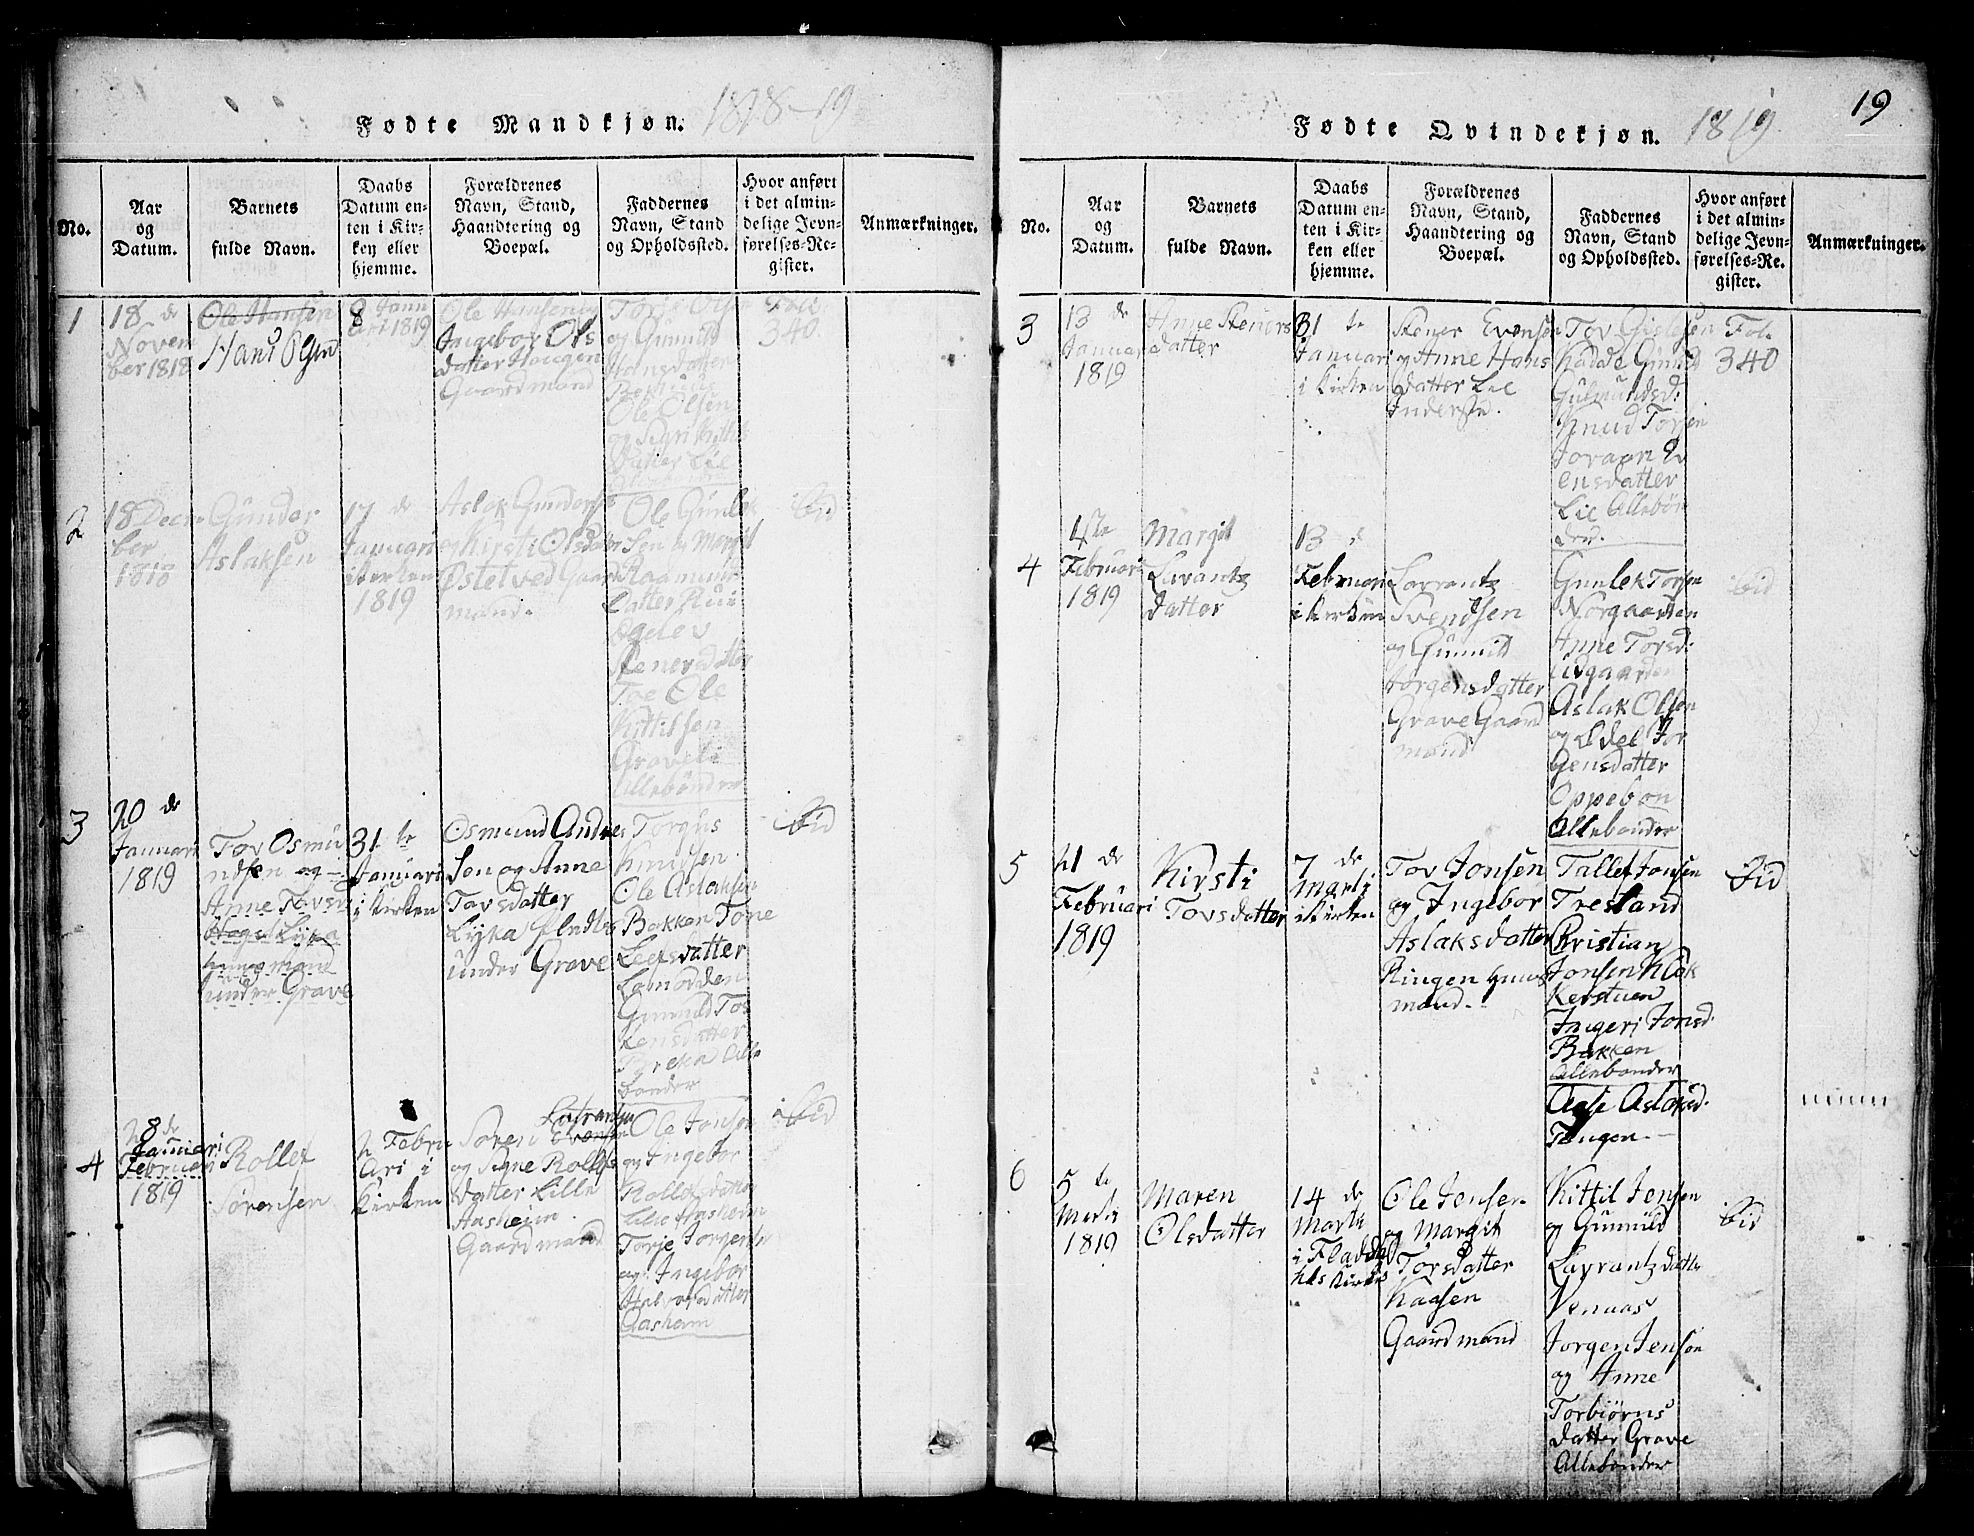 Fødte Mandkjøn. 1818-19
No.
Aar
og
Datum.
Barnets
fulde Navn.
Daabs
Datum en-
ten i Kir-
ken eller
hjemme.
Forældrenes
Navn, Stand,
Haandtering og
Boepæl.
Faddernes
Navn, Stand
og Opholdssted.
Hvor anført
i det almin-
delige Jevn-
førelses-Re-
gister.
Anmærkninger.
1
18 de
Novem
ber 1818
Ole Hansen
Hans Olsen
8 Janu
ari 1819
Ole Hansen og
Ingebor Ols
datter Haugen
Gaardmand
Torje Olsen
og Gunnild
Hansdatter
Ole Olsen
og Sigri Kittils
datter Lie
Fol.
340.
2
18 Decem
ber
1818
Gunder
Aslaksen
17 de
Januari
i Kirken
1819
Aslak Gunders
og Kirsti Olsdatter
Østetved Gaard
mand.
Ole Gunlek
sen Margit
Raamunds
datter Rui
Egelev
Stenersdatter
Toe Ole
Kittilsen
Graveli
Allebønder
ibid
3
20 de
Januari
1819
Tov Osmu
ndsen og
Anne Tovsd
Lyka
huusmand
under Grave
31 te
Januari
i Kirken
Osmund Andres
sen og Anne
Tovsdatter
Lyka
under Grave
Torgus
Knudsen
Ole Aslaksen
Bakken Tone
Leefsdatter
Lonodden
Gunnild Tor
kensdatter
Byreka Alle
bønder
ibid
4
28 de
Januari
Februari
1819
Rollef
Sørensen
2 Febru
ari i
Kirken
Lavrantz
Søren Evensen
og Signe Rollefs
datter Lille
Aasheim
Gaardmand
Ole Jonsen
og Ingebor
Rollefsdatter
Lille Aasheim
Torje Jorgensen
og Ingebor
Halvorsdatter
Aasheim
ibid
19
Fødte Qvindekjøn. 1819.
No.
Aar
og
Datum.
Barnets
fulde Navn.
Daabs
Datum en-
ten i Kir-
ken eller
hjemme.
Forældrenes
Navn, Stand,
Haandtering og
Boepæl.
Faddernes
Navn, Stand
og Opholdssted.
Hvor anført
i det almin-
delige Jevn-
førelses-Re-
gister.
Anmærkninger.
3
13 de
Januari
1819
Anne Steners
datter
31 te
Januari
i Kirken
Stener Evensen
og Anne Hans
datter Lie
Inderste.
Tov Gislesen
Kaade Gunild
Gulmundsd:
Knud Torsen
Joraan Ev
ensdatter
Lie Allebøn
der.
Fol.
340
4
4 ste
Februari
1819
Margit
Lavrantz
datter
13 de
Februari
i Kirken
Lavrantz
Svendsen
og Gunnild
Jørgensdatter
Grave Gaard
mand
Gunlek Torsen
Norgaarden
Anne Torsd:
Uvgaarden
Aslak Olsen
og Edel Jor
gensdatter
Oppebøn
Allebønder
ibid
5
21 de
Februari
1819
Kirsti
Tovsdatter
7 de
Marti
i Kirken
Tov Jonsen
og Ingebor
Aslaksdatter
Ringen Huus
mand.
Tallef Jonsen
Tresland
Christian
Jonsen Klok
kerstuen
Ingeri Jonsd.
Bakken
Allebønder
Aase Aslaksd.
Tangen.
ibid
6
5 de
Marti
1819
Maren
Olsdatter
14 de
Marti
i Fladdal
hls Kirke
Ole Jensen
og Margit
Torsdatter
Kaasen
Gaardmand
Kittil Jensen
og Gunnuld
Lavrantzdatter
Venaas
Jorgen Jensøn
og Anne
Torbiørns
datter Grave
Allebønder
ibid